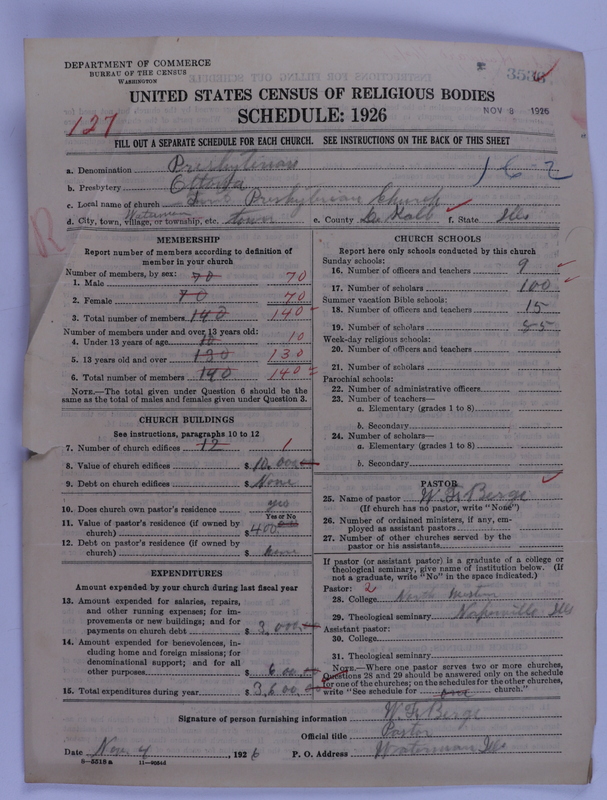 DEPARTMENT OF COMMERCE
BUREAU OF THE CENSUS
WASHINGTON
UNITED STATES CENSUS OF RELIGIOUS BODIES
SCHEDULE: 1926
NOV 8 1926
127
FILL OUT A SEPARATE SCHEDULE FOR EACH CHURCH. SEE INSTRUCTIONS ON THE BACK OF THIS SHEET
162
a. Denomination Presbyterian
b. Presbytery Ottawa
c. Local name of church Presbyterian Church
d. City, town, village, or township, etc. Waterman town e. County De Kalb f. State Ills
R
MEMBERSHIP
Report number of members according to definition of member in your church
Number of members, by sex:
1. Male 70 70
2. Female 70 70
3. Total number of members 140 140
Number of members under and over 13 years old:
4. Under 13 years of age 10 10
5. 13 years old and over 130 130
6. Total number of members 140 140
NOTE.—The total given under Question 6 should be the same as the total of males and females given under Question 3.
CHURCH BUILDINGS
See instructions, paragraphs 10 to 12
7. Number of church edifices 12 1
8. Value of church edifices $ 10,000
9. Debt on church edifices $ None
10. Does church own pastor's residence yes
Yes or No
11. Value of pastor's residence (if owned by church) $
12. Debt on pastor's residence (if owned by church) $ None
EXPENDITURES
Amount expended by your church during last fiscal year
13. Amount expended for salaries, repairs, and other running expenses; for improvements or new buildings; and for payments on church debt $ 3,000
14. Amount expended for benevolences, including home and foreign missions; for denominational support; and for all other purposes $ 600
15. Total expenditures during year $ 3,600
CHURCH SCHOOLS
Report here only schools conducted by this church
Sunday schools:
16. Number of officers and teachers 9
17. Number of scholars 100
Summer vacation Bible schools:
18. Number of officers and teachers 15
19. Number of scholars 85
Week-day religious schools:
20. Number of officers and teachers
21. Number of scholars
Parochial schools:
22. Number of administrative officers
23. Number of teachers—
a. Elementary (grades 1 to 8)
b. Secondary
24. Number of scholars—
a. Elementary (grades 1 to 8)
b. Secondary
PASTOR
25. Name of pastor
(If church has no pastor, write "None")
26. Number of ordained ministers, if any, employed as assistant pastors
27. Number of other churches served by the pastor or his assistants
If pastor (or assistant pastor) is a graduate of a college or theological seminary, give name of institution below. (If not a graduate, write "No" in the space indicated.)
Pastor: 2
28. College North Western
29. Theological seminary Naperville Ills
Assistant pastor:
30. College
31. Theological seminary
NOTE.—Where one pastor serves two or more churches, Questions 28 and 29 should be answered only on the schedule for one of the churches; on the schedules for the other churches, write "See schedule for one church."
Signature of person furnishing information
Official title Pastor
Date Nov 4, 1926 P. O. Address Waterman Ills
8—5518 a